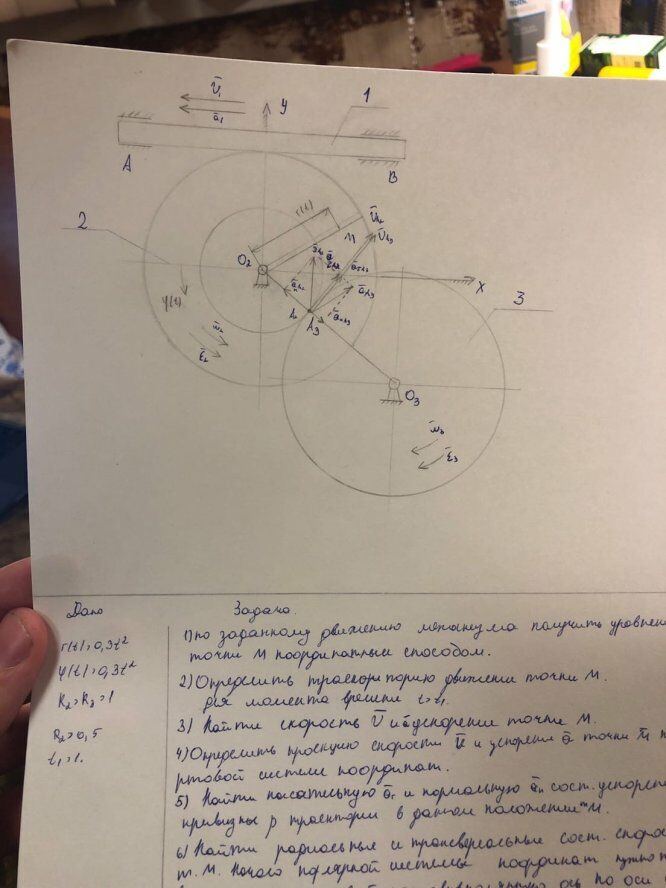 V̄₁
ā₁
y
1
A
B
2
r(t)
M
V̄A₂
V̄A₃
O₂
X
3
φ(t)
A₃
ω̄₂
ε̄₂
O₃
ω̄₃
ε̄₃
Дано
Задача.
r(t)=0,3t²
φ(t)=0,3t²
R₂=R₃=1
R₂=0,5
t₁=1.
1) по заданному движению механизма получить уравнение
точки M координатным способом.
2) Определить траекторию движения точки M.
для момента времени t=t₁
3) Найти скорость V̄ и ā ускорение точки M.
4) Определить проекцию скорости V̄ и ускорения ā точки
ртовой системе координат.
5) Найти касательную āτ и нормальную āₙ сост. ускорения
кривизны ρ траектории в данном положении т M.
6) Найти радиальные и трансверсальные сост. скорос
т. M. Начало полярной системы координат нужно
ось по оси